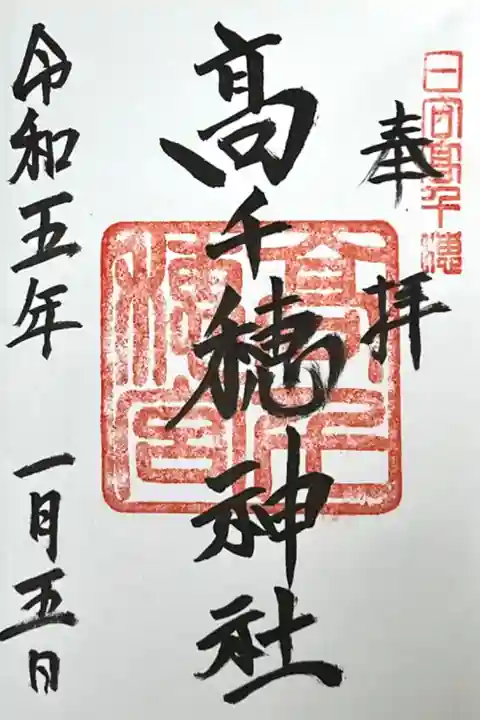 日向高千穂
奉拝
高千穂宮
髙千穂神社
令和五年 一月五日